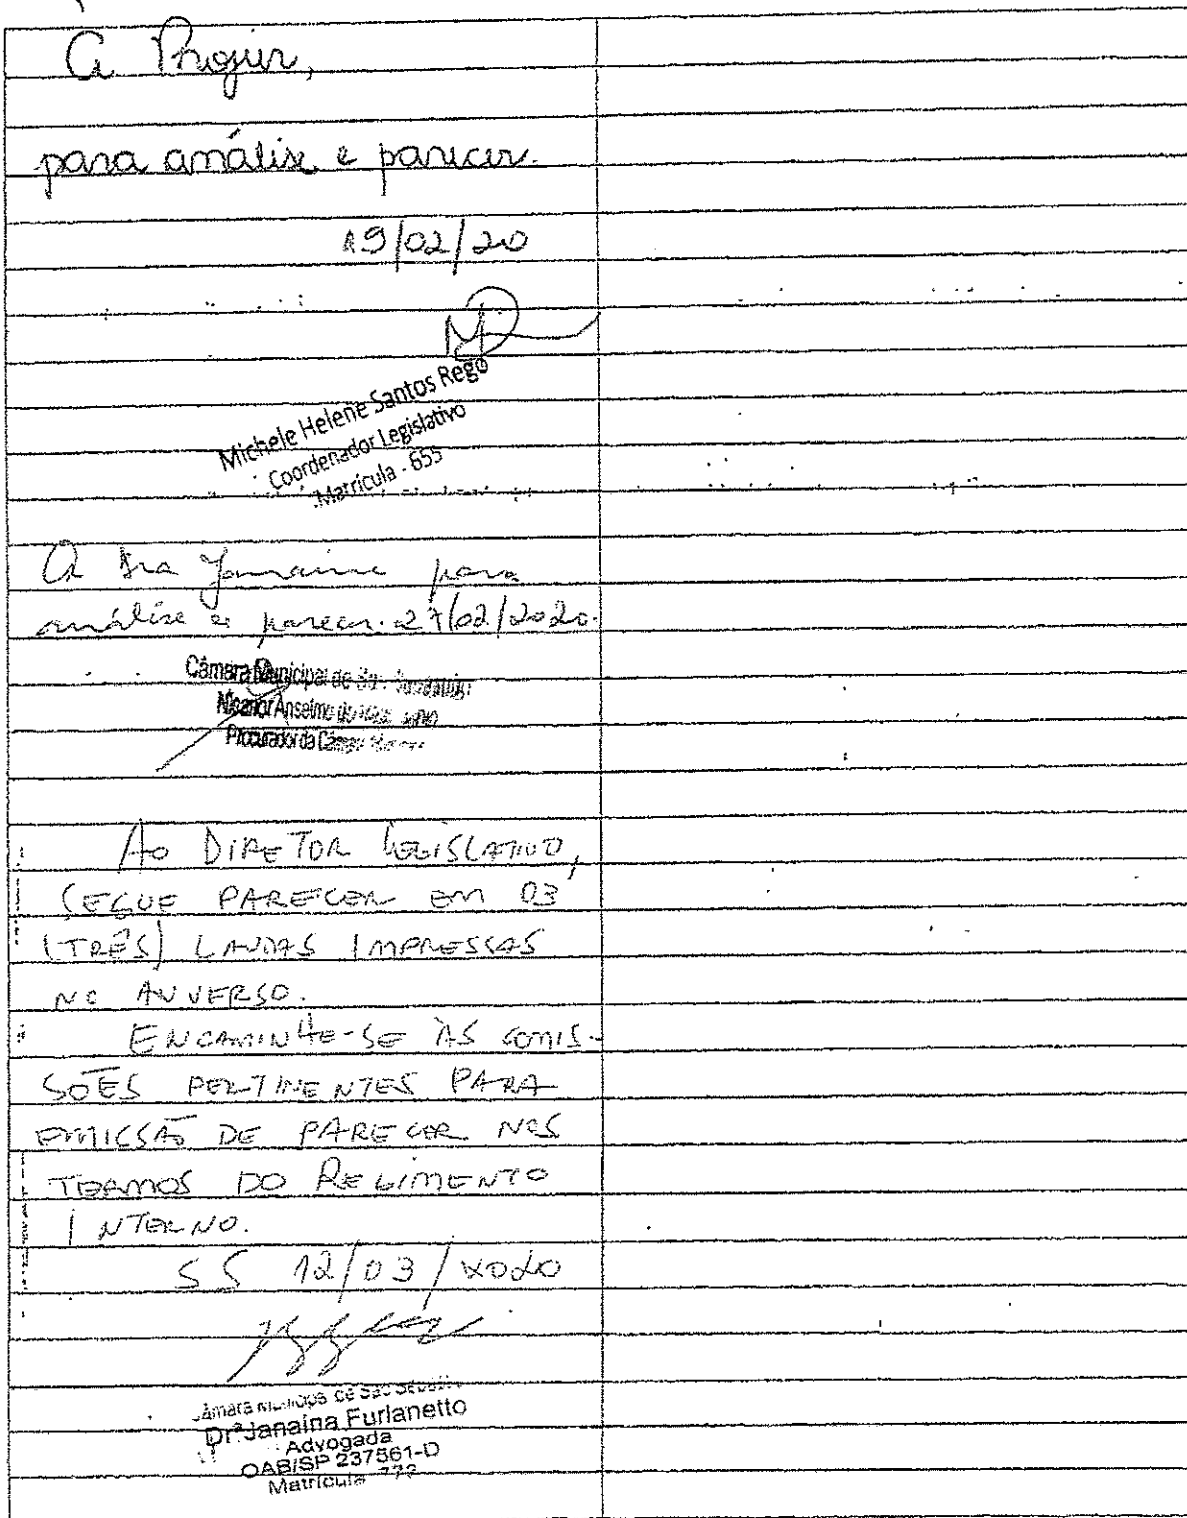 A Projur,
para análise e parecer.
19/02/20
Michele Helene Santos Rego
Coordenador Legislativo
Matrícula - 655
A Dra Janaina para
análise e parecer. 27/02/2020.
Câmara Municipal de São Sebastião
Anselmo
Procurador da Câmara
Ao Diretor Legislativo,
segue parecer em 03
(três) laudas impressas
no anverso.
Encaminhe-se às comis-
sões pertinentes para
emissão de parecer nos
termos do Regimento
Interno.
SS 12/03/2020
Câmara Municipal de São Sebastião
Drª Janaína Furlanetto
Advogada
OAB/SP 237561-D
Matrícula